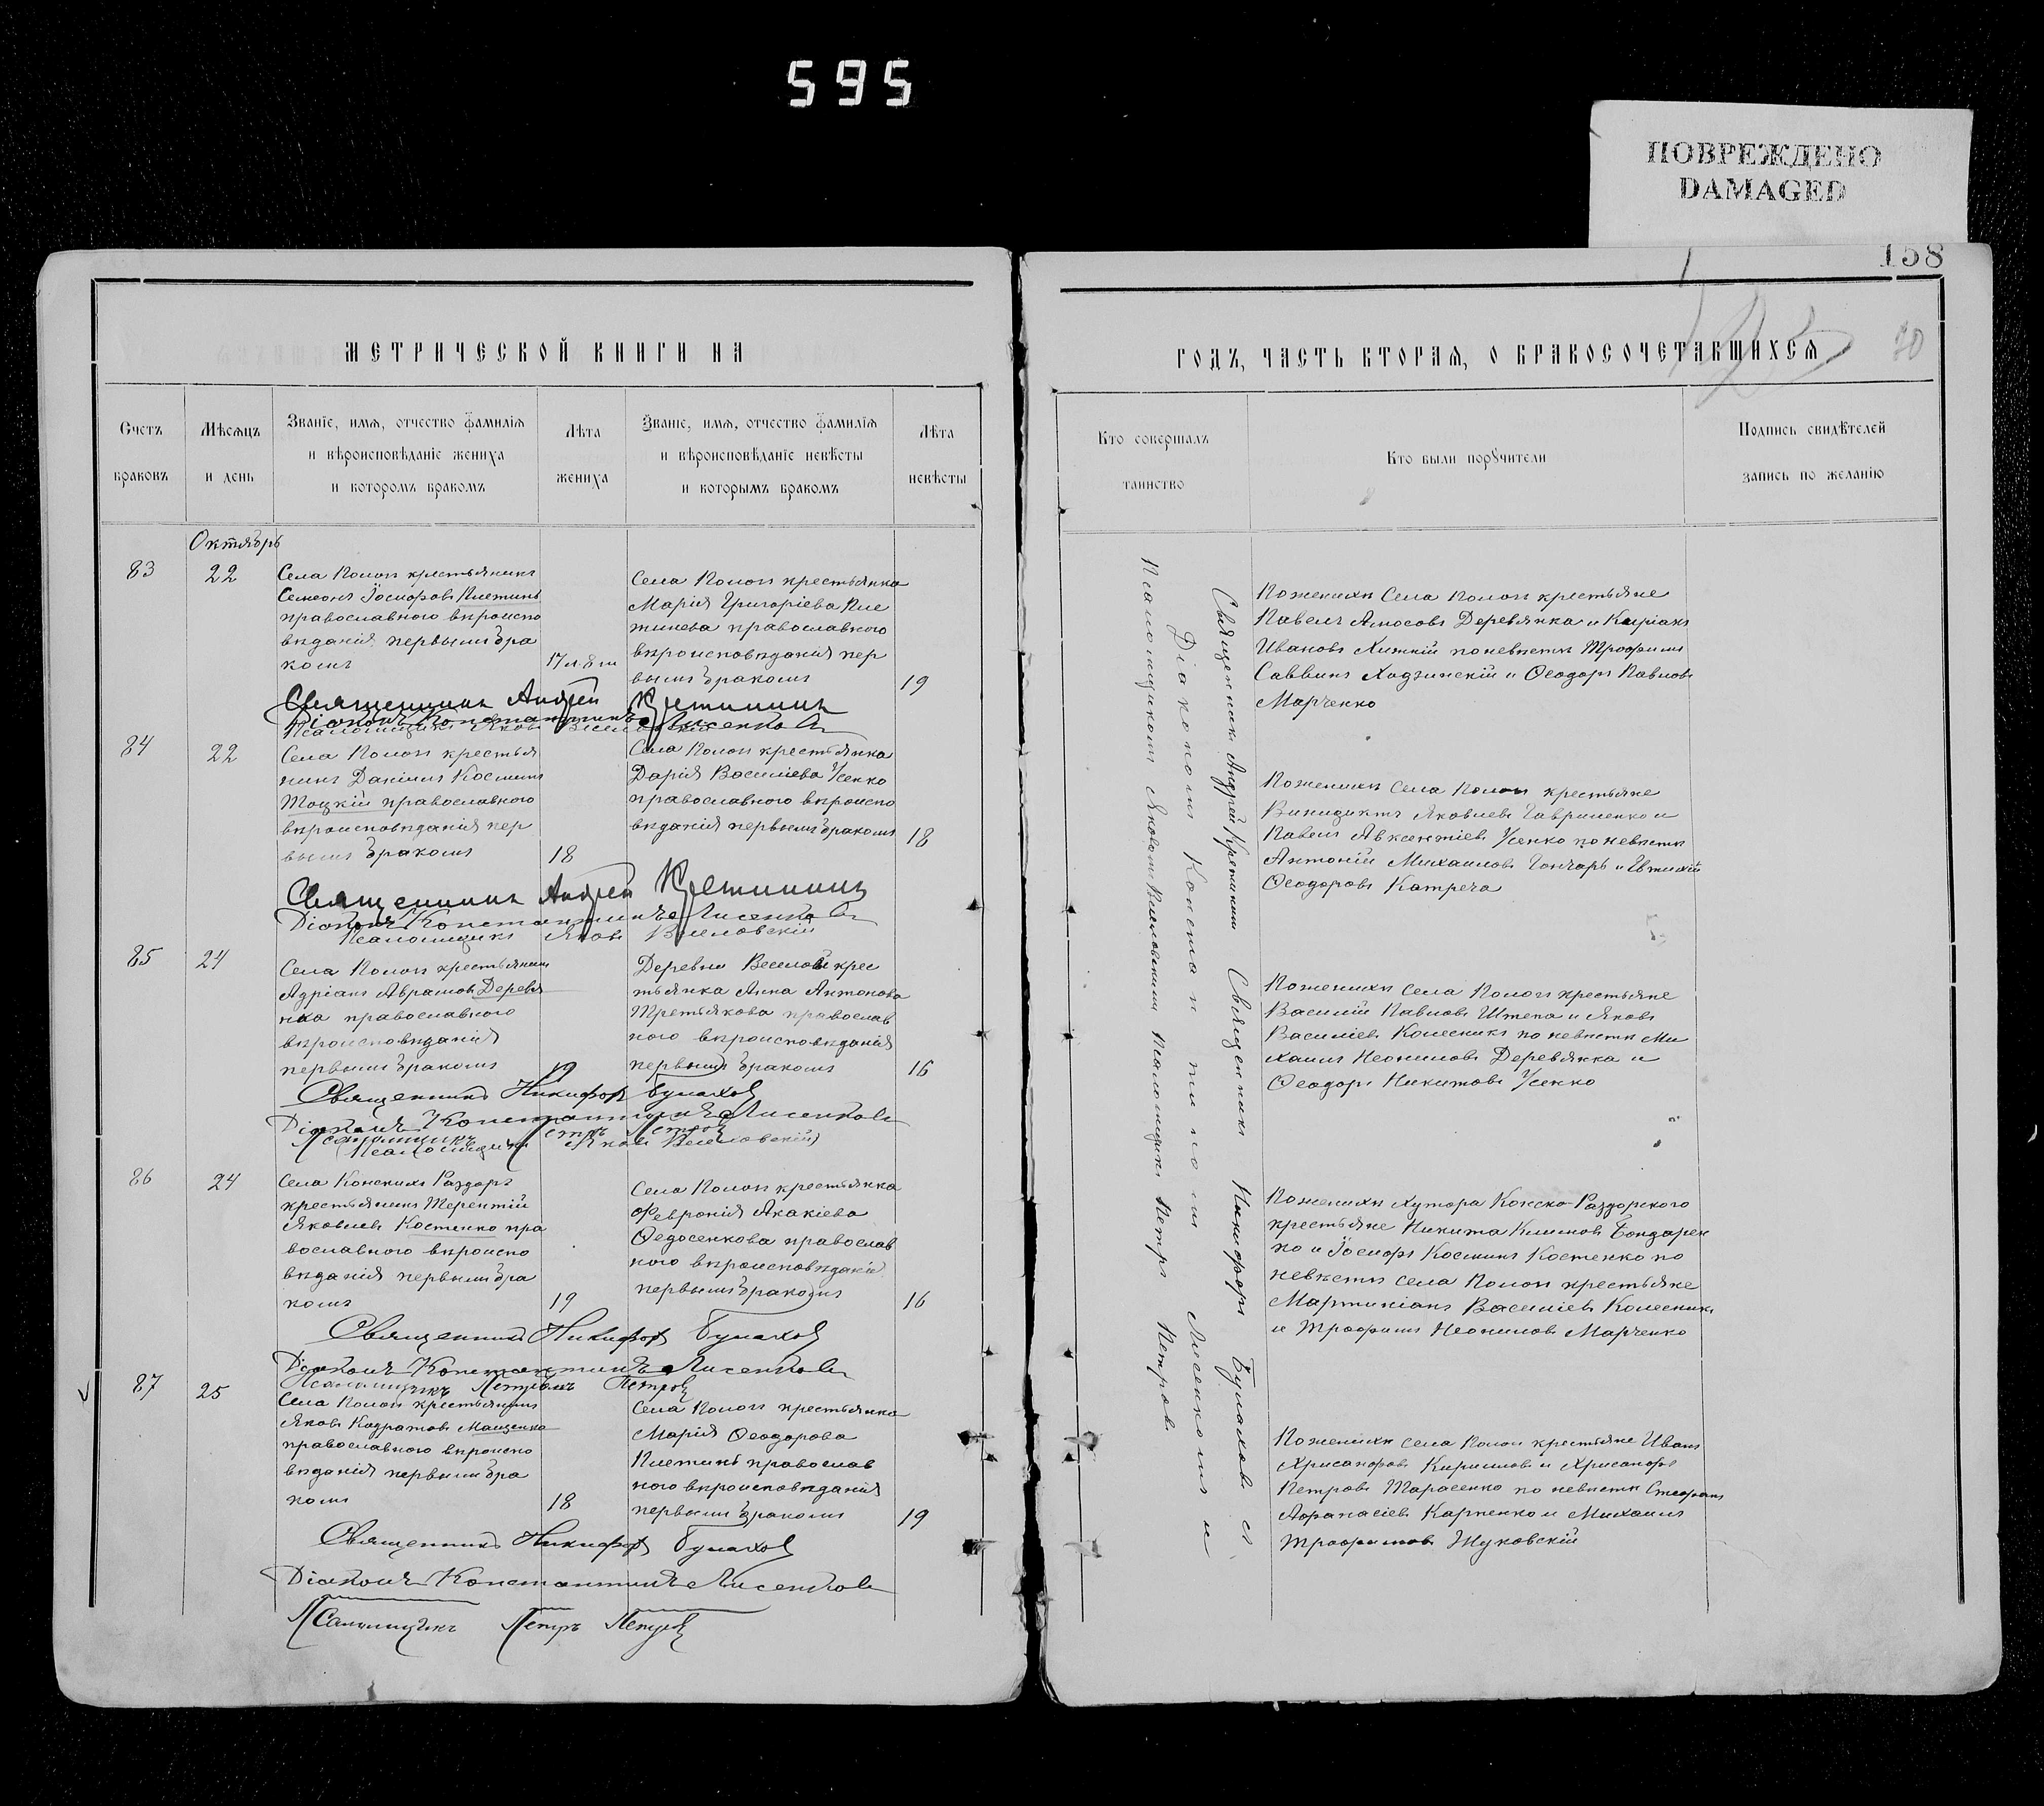 595
ПОВРЕЖДЕНО
DAMAGED
158
МЕТРИЧЕСКОЙ КНИГИ НА
Счетъ браковъ
Мѣсяцъ и день
Званіе, имя, отчество фамилія
и вѣроисповѣданіе жениха
и которомъ бракомъ
Лѣта жениха
Званіе, имя, отчество фамилія
и вѣроисповѣданіе невѣсты
и которымъ бракомъ
Лѣта невѣсты
Октябрь
83
22
Села Пологи крестьянинъ
Симеонъ Іосифовъ Плетинь
православнаго вѣроиспо
вѣданія первымъ бра
комъ
Села Пологи крестьянка
Марія Григоріева Пле
тнева православного
вѣроисповѣданія пер
вымъ бракомъ
19
Священникъ Андрей
Діаконъ Константинъ Лисенковъ
Псаломщикъ Яковъ
84
22
Села Пологи крестья
нинъ Даніилъ Косминъ
Тоцкій православного
вѣроисповѣданія пер
вымъ бракомъ
18
Села Пологи крестьянка
Дарія Василіева Усенко
православного вѣроиспо
вѣданія первымъ бракомъ
18
Священникъ Андрей
Діаконъ Константинъ Лисенковъ
Псаломщикъ Яковъ
85
24
Села Пологи крестьянинъ
Адріанъ Аврамовъ Деревя
нка православного
вѣроисповѣданія
первымъ бракомъ
19
Деревни Веселой крес
тьянка Анна Антонова
Третьякова православ
ного вѣроисповѣданія
первымъ бракомъ
16
Священникъ Никифоръ Булахов
Діаконъ Константинъ Лисенковъ
Псаломщикъ Петръ Петров
Псаломщикъ Яковъ
86
24
Села Конскихъ Раздоръ
крестьянинъ Терентій
Яковлевъ Костенко пра
вославного вѣроиспо
вѣданія первымъ бра
комъ
19
Села Пологи крестьянка
Февронія Акакіева
Федосенкова православ
ного вѣроисповѣданія
первымъ бракомъ
16
Священникъ Никифоръ Булахов
Діаконъ Константинъ Лисенковъ
Псаломщикъ Петров
87
25
Села Пологи крестьянинъ
Яковъ Кодратовъ Мащенко
православного вѣроиспо
вѣданія первымъ бра
комъ
18
Села Пологи крестьянка
Марія Феодорова
Плетинь православ
ного вѣроисповѣданія
первымъ бракомъ
19
Священникъ Никифоръ Булахов
Діаконъ Константинъ Лисенковъ
Псаломщикъ Петръ Петров
ГОДЪ, ЧАСТЬ ВТОРАЯ, О БРАКОСОЧЕТАВШИХСЯ
Кто совершалъ таинство
Кто были поручители
Подпись свидѣтелей
запись по желанію
Священникъ Андрей Священникъ Никифоръ Булаховъ съ
Діакономъ Константиномъ Лисенкомъ и
Псаломщикомъ Яковомъ Псаломщикъ Петръ Петровъ
По женихѣ Села Пологи крестьяне
Павелъ Амосовъ Деревянка и Киріакъ
Ивановъ Хижній по невѣстѣ Трофимъ
Саввинъ Ходзинскій и Феодоръ Павловъ
Марченко
По женихѣ Села Пологи крестьяне
Винидиктъ Яковлевъ Гавриленко и
Павелъ Авксентіевъ Усенко по невѣстѣ
Антоній Михаиловъ Гончаръ и Евтихій
Феодоровъ Катреча
По женихѣ Села Пологи крестьяне
Василій Павловъ Штепа и Яковъ
Василіевъ Колесникъ по невѣстѣ Ми
хаилъ Неониловъ Деревянка и
Феодоръ Никитовъ Усенко
По женихѣ Хутора Конско-Раздорского
крестьяне Никита Климовъ Бондарен
ко и Іосифъ Космин Костенко по
невѣстѣ Села Пологи крестьяне
Мартиніанъ Василіевъ Колесникъ
и Трофимъ Неониловъ Марченко
По женихѣ Села Пологи крестьяне Иванъ
Хрисанфовъ Кириловъ и Хрисанфъ
Петровъ Тарасенко по невѣстѣ Стефанъ
Афанасіевъ Карпенко и Михаилъ
Трофимовъ Жуковскій